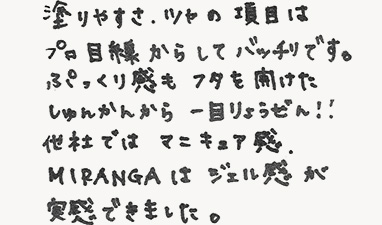 塗りやすさ、ツヤの項目は
プロ目線からしてバッチリです。
ぷっくり感もフタを開けた
しゅんかんから一目りょうぜん!!
他社ではマニキュア感、
MIRANGAはジェル感が
実感できました。